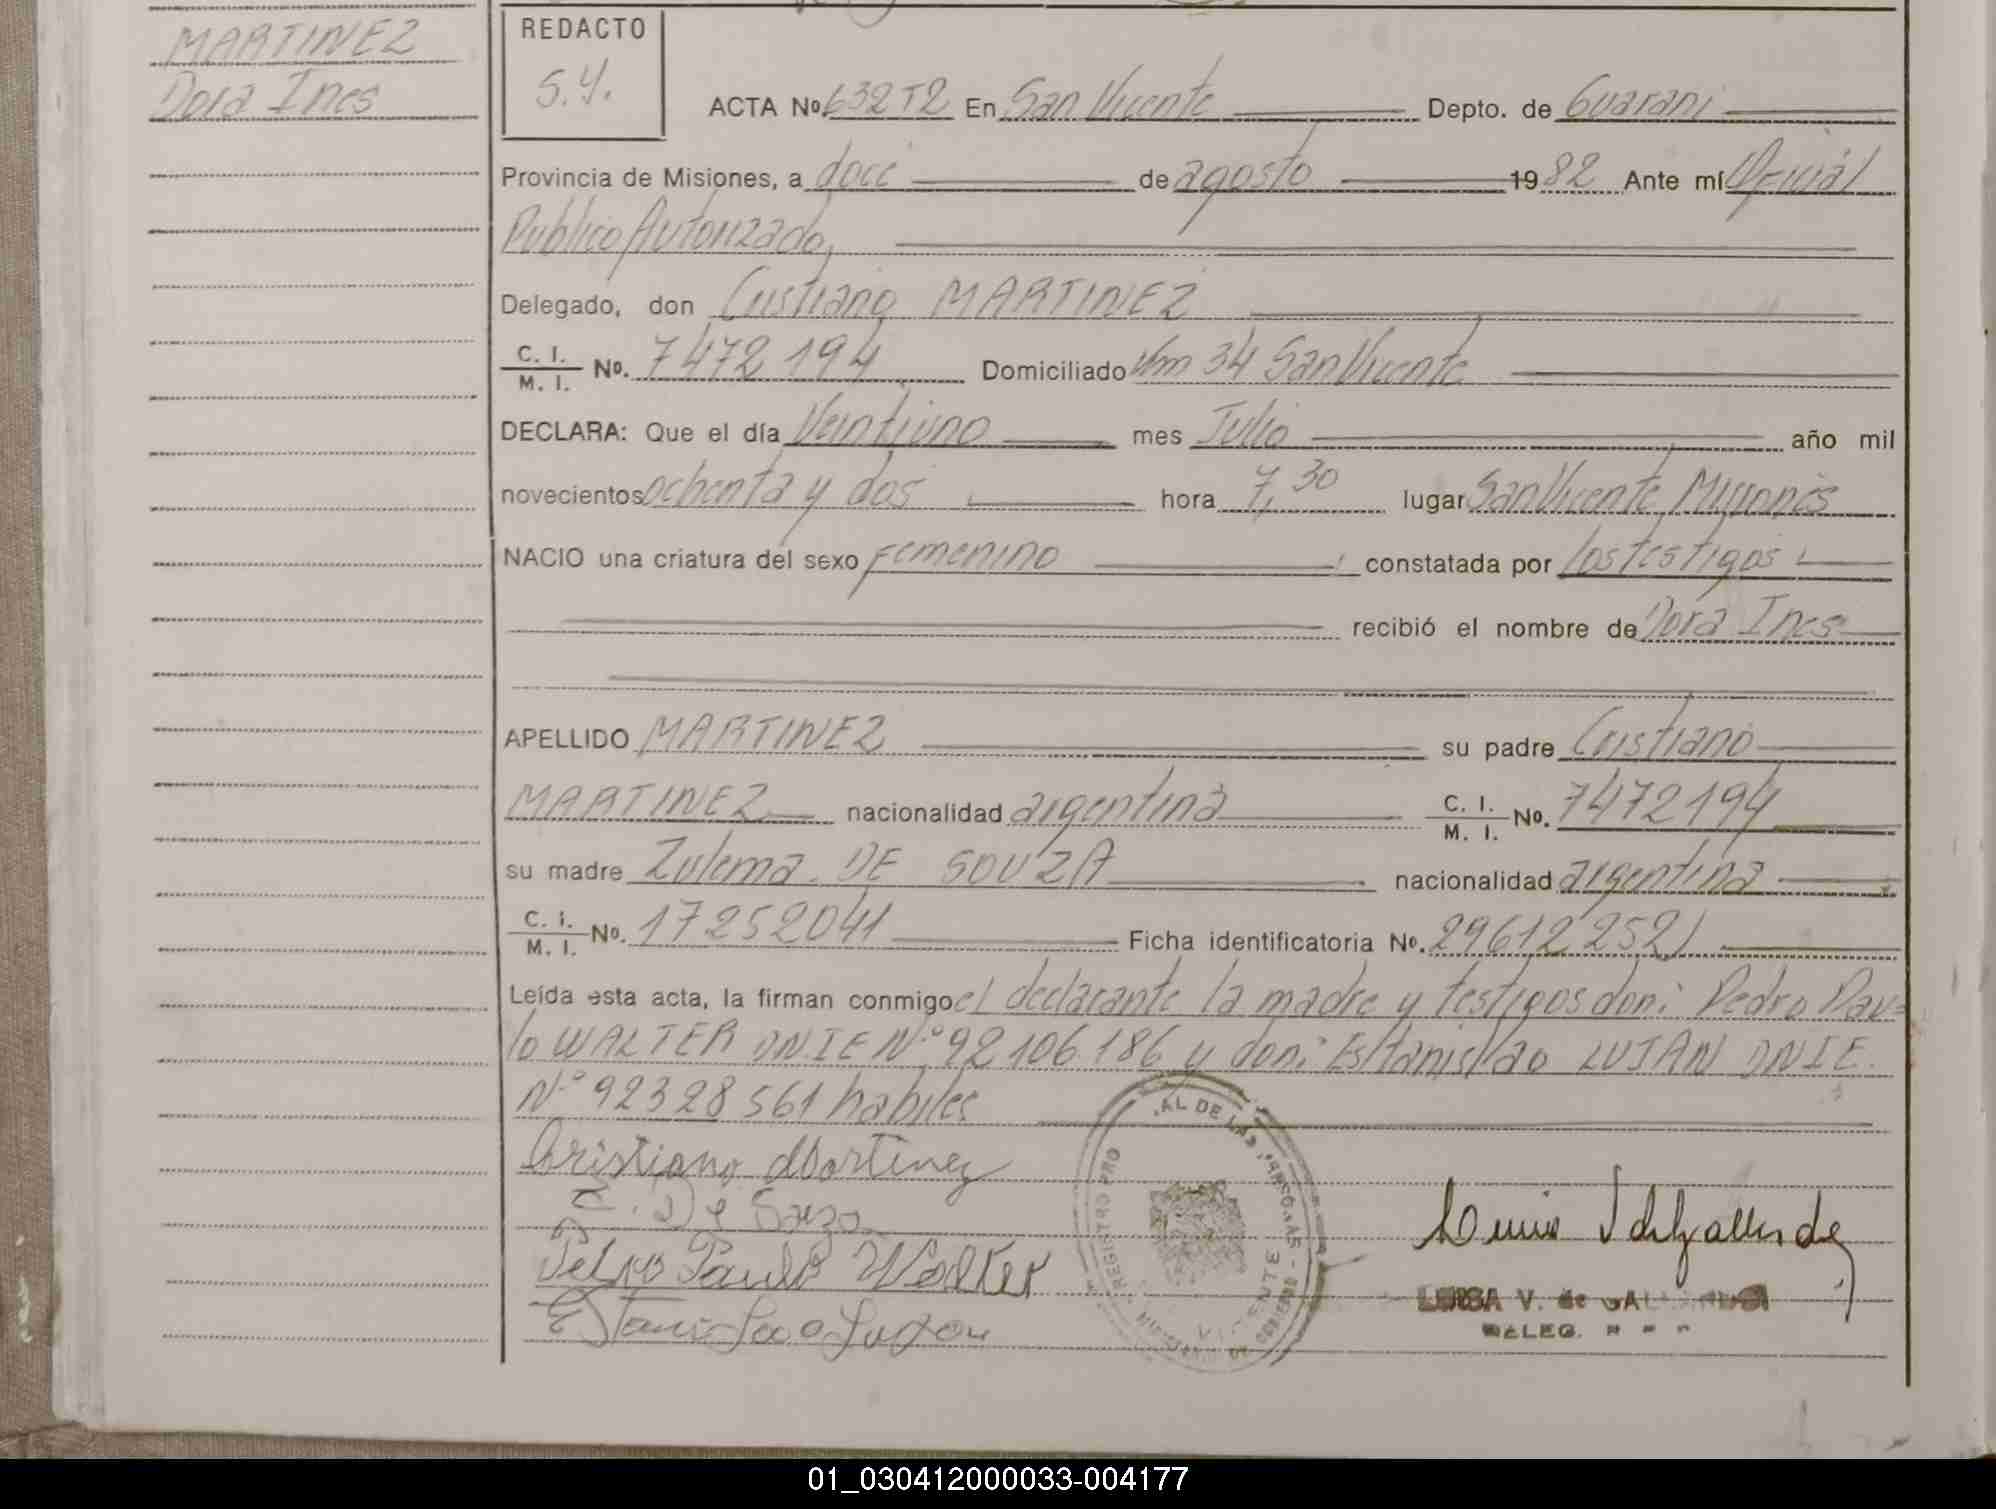 MARTINEZ
Dora Ines
REDACTO
S.Y.
ACTA No. 632T2 En San Vicente Depto. de Guarani
Provincia de Misiones, a doce de agosto 1982 Ante mí Oficial
Publico Autorizado,
Delegado, don Cristiano MARTINEZ
C. I.
M. I. No. 7472194 Domiciliado Km 34 San Vicente
DECLARA: Que el día Veintiuno mes Julio año mil
novecientos ochenta y dos hora 7,30 lugar San Vicente, Misiones
NACIO una criatura del sexo Femenino constatada por los testigos
recibió el nombre de Dora Ines
APELLIDO MARTINEZ su padre Cristiano
MARTINEZ nacionalidad argentina C. I.
M. I. No. 7472194
su madre Zulema DE SOUZA nacionalidad argentina
C. I.
M. I. No. 17252041 Ficha identificatoria No. 29612252
Leída esta acta, la firman conmigo el declarante la madre y testigos don: Pedro Pau=
lo WALTER DNIE N° 92106.186 y don: Estanislao LUJAN DNIE.
N° 92328561 habiles
Cristiano Martinez
Z. De Souza
Pedro Paulo Walter
Estanislao Lujan
REGISTRO PRO
AL DE LAS PERSONAS
LUISA V. de
DELEG.
01_030412000033-004177